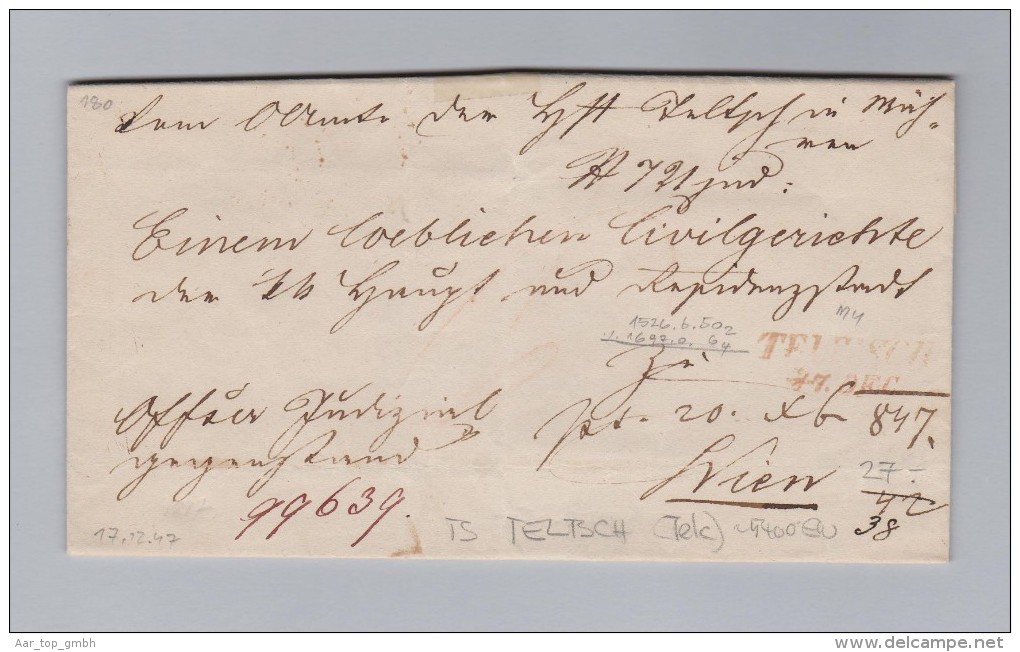 180
Vom OAmte der Hft Teltsch in Mäh-
ren
N 721 jud:
Einem loeblichen Civilgerichte
der kk Haupt und Residenzstadt
M4
1526.b.50 2
1697.a. 64
TELTSCH
17. DEC
Zu
Offiose Judizial
gegenstand
pr. 20. Xb 847.
Wien
27.-
42
38
99639.
17.12.47
TS TELTSCH (Telc)
Aar_top_gmbh
www.delcampe.net